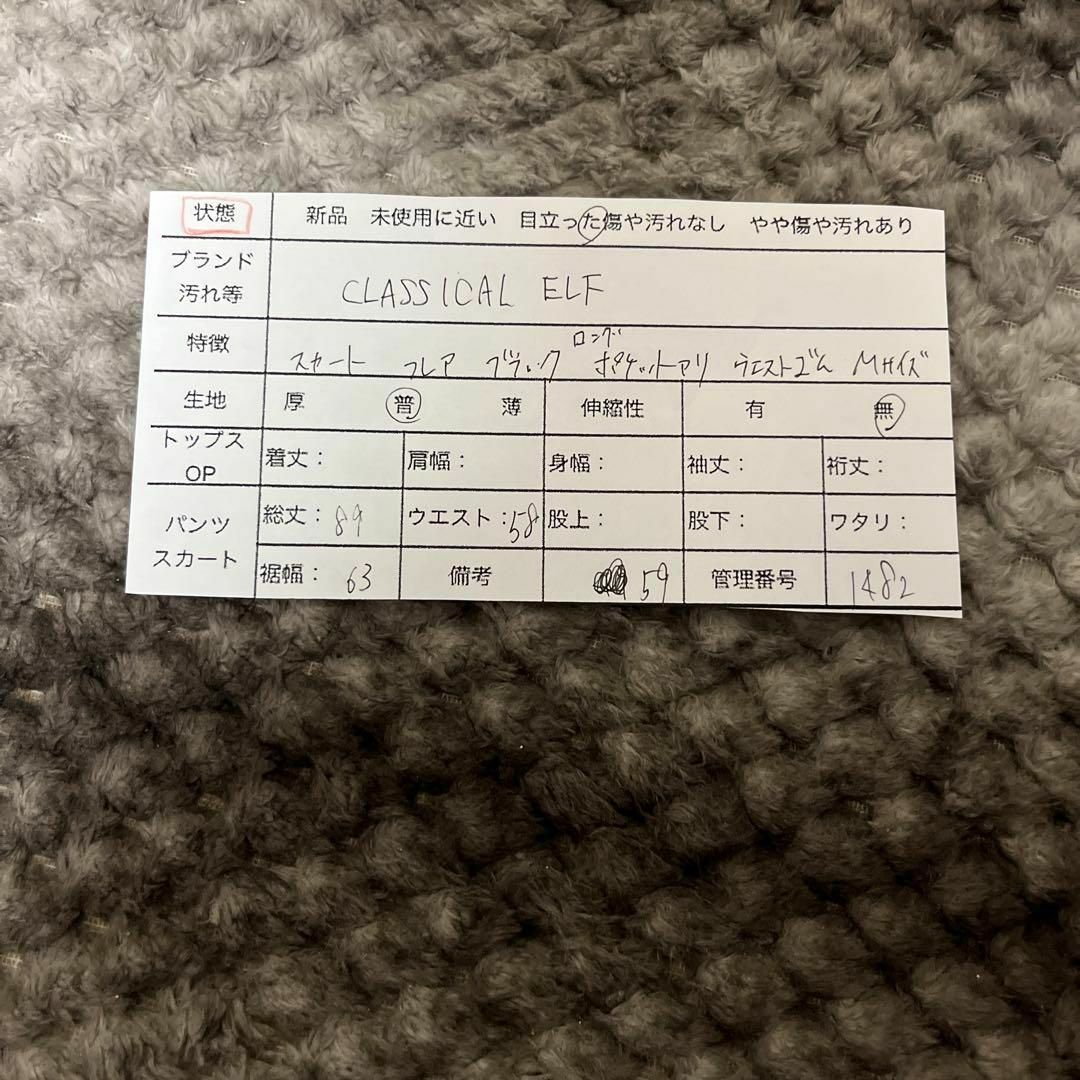 状態 新品 未使用に近い 目立った傷や汚れなし やや傷や汚れあり
ブランド
汚れ等 CLASSICAL ELF
ロング
特徴 スカート フレア ブラック ポケットアリ ウエストゴム Mサイズ
生地 厚 普 薄 伸縮性 有 無
トップス
OP 着丈： 肩幅： 身幅： 袖丈： 裄丈：
パンツ
スカート 総丈：89 ウエスト：58 股上： 股下： ワタリ：
裾幅：63 備考 59 管理番号 1482